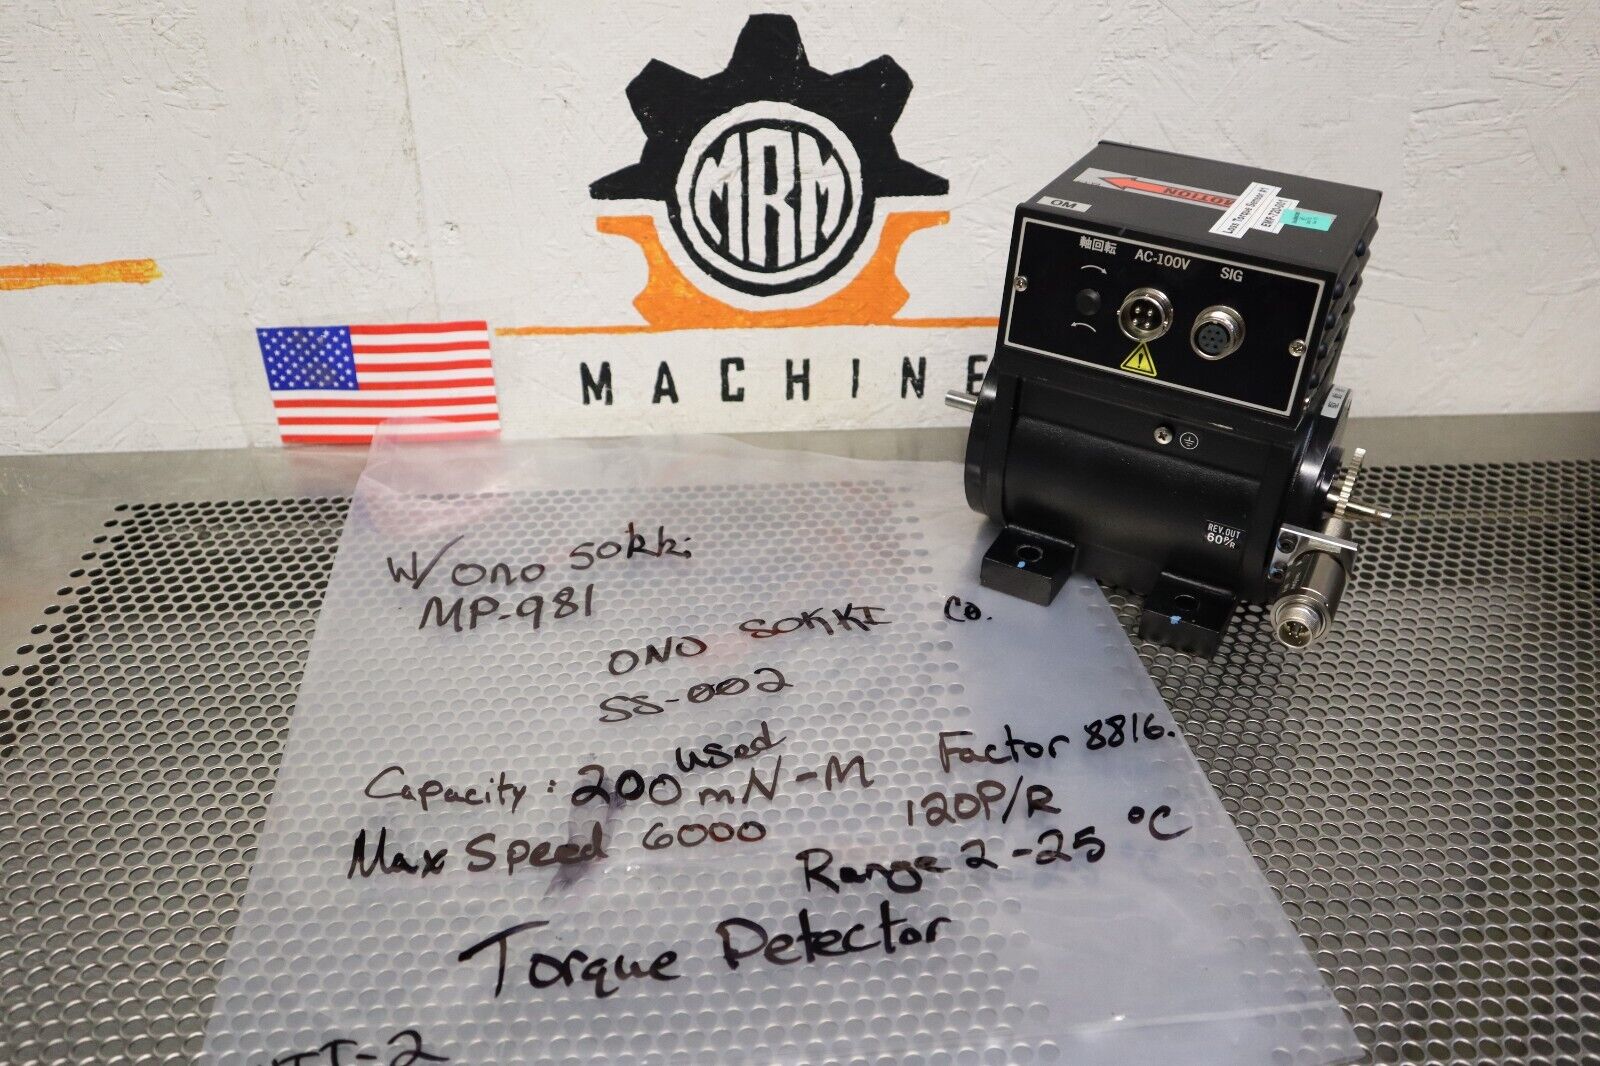 MRM
MACHINE
OM
MOTION
Loss Torque Sensor #1
EMF-720-001
軸回転
AC-100V
SIG
REV.OUT
60P/R
W/ ONO SOKKi
MP-981
ONO SOKKI CO.
SS-002
used
Capacity: 200 mN-M Factor 8816.
Max Speed 6000 120P/R
Range 2-25 °C
Torque Detector